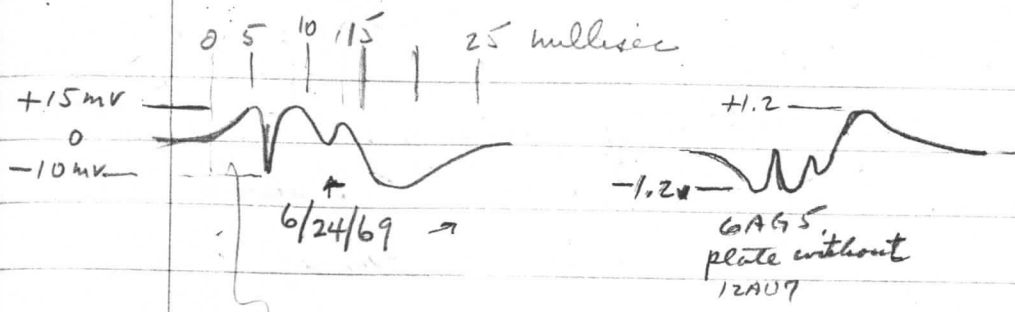 0 5 10 15 25 millisec
+15mv
0
-10mv
6/24/69
+1.2
-1.2v
6AG5
plate without
12AU7